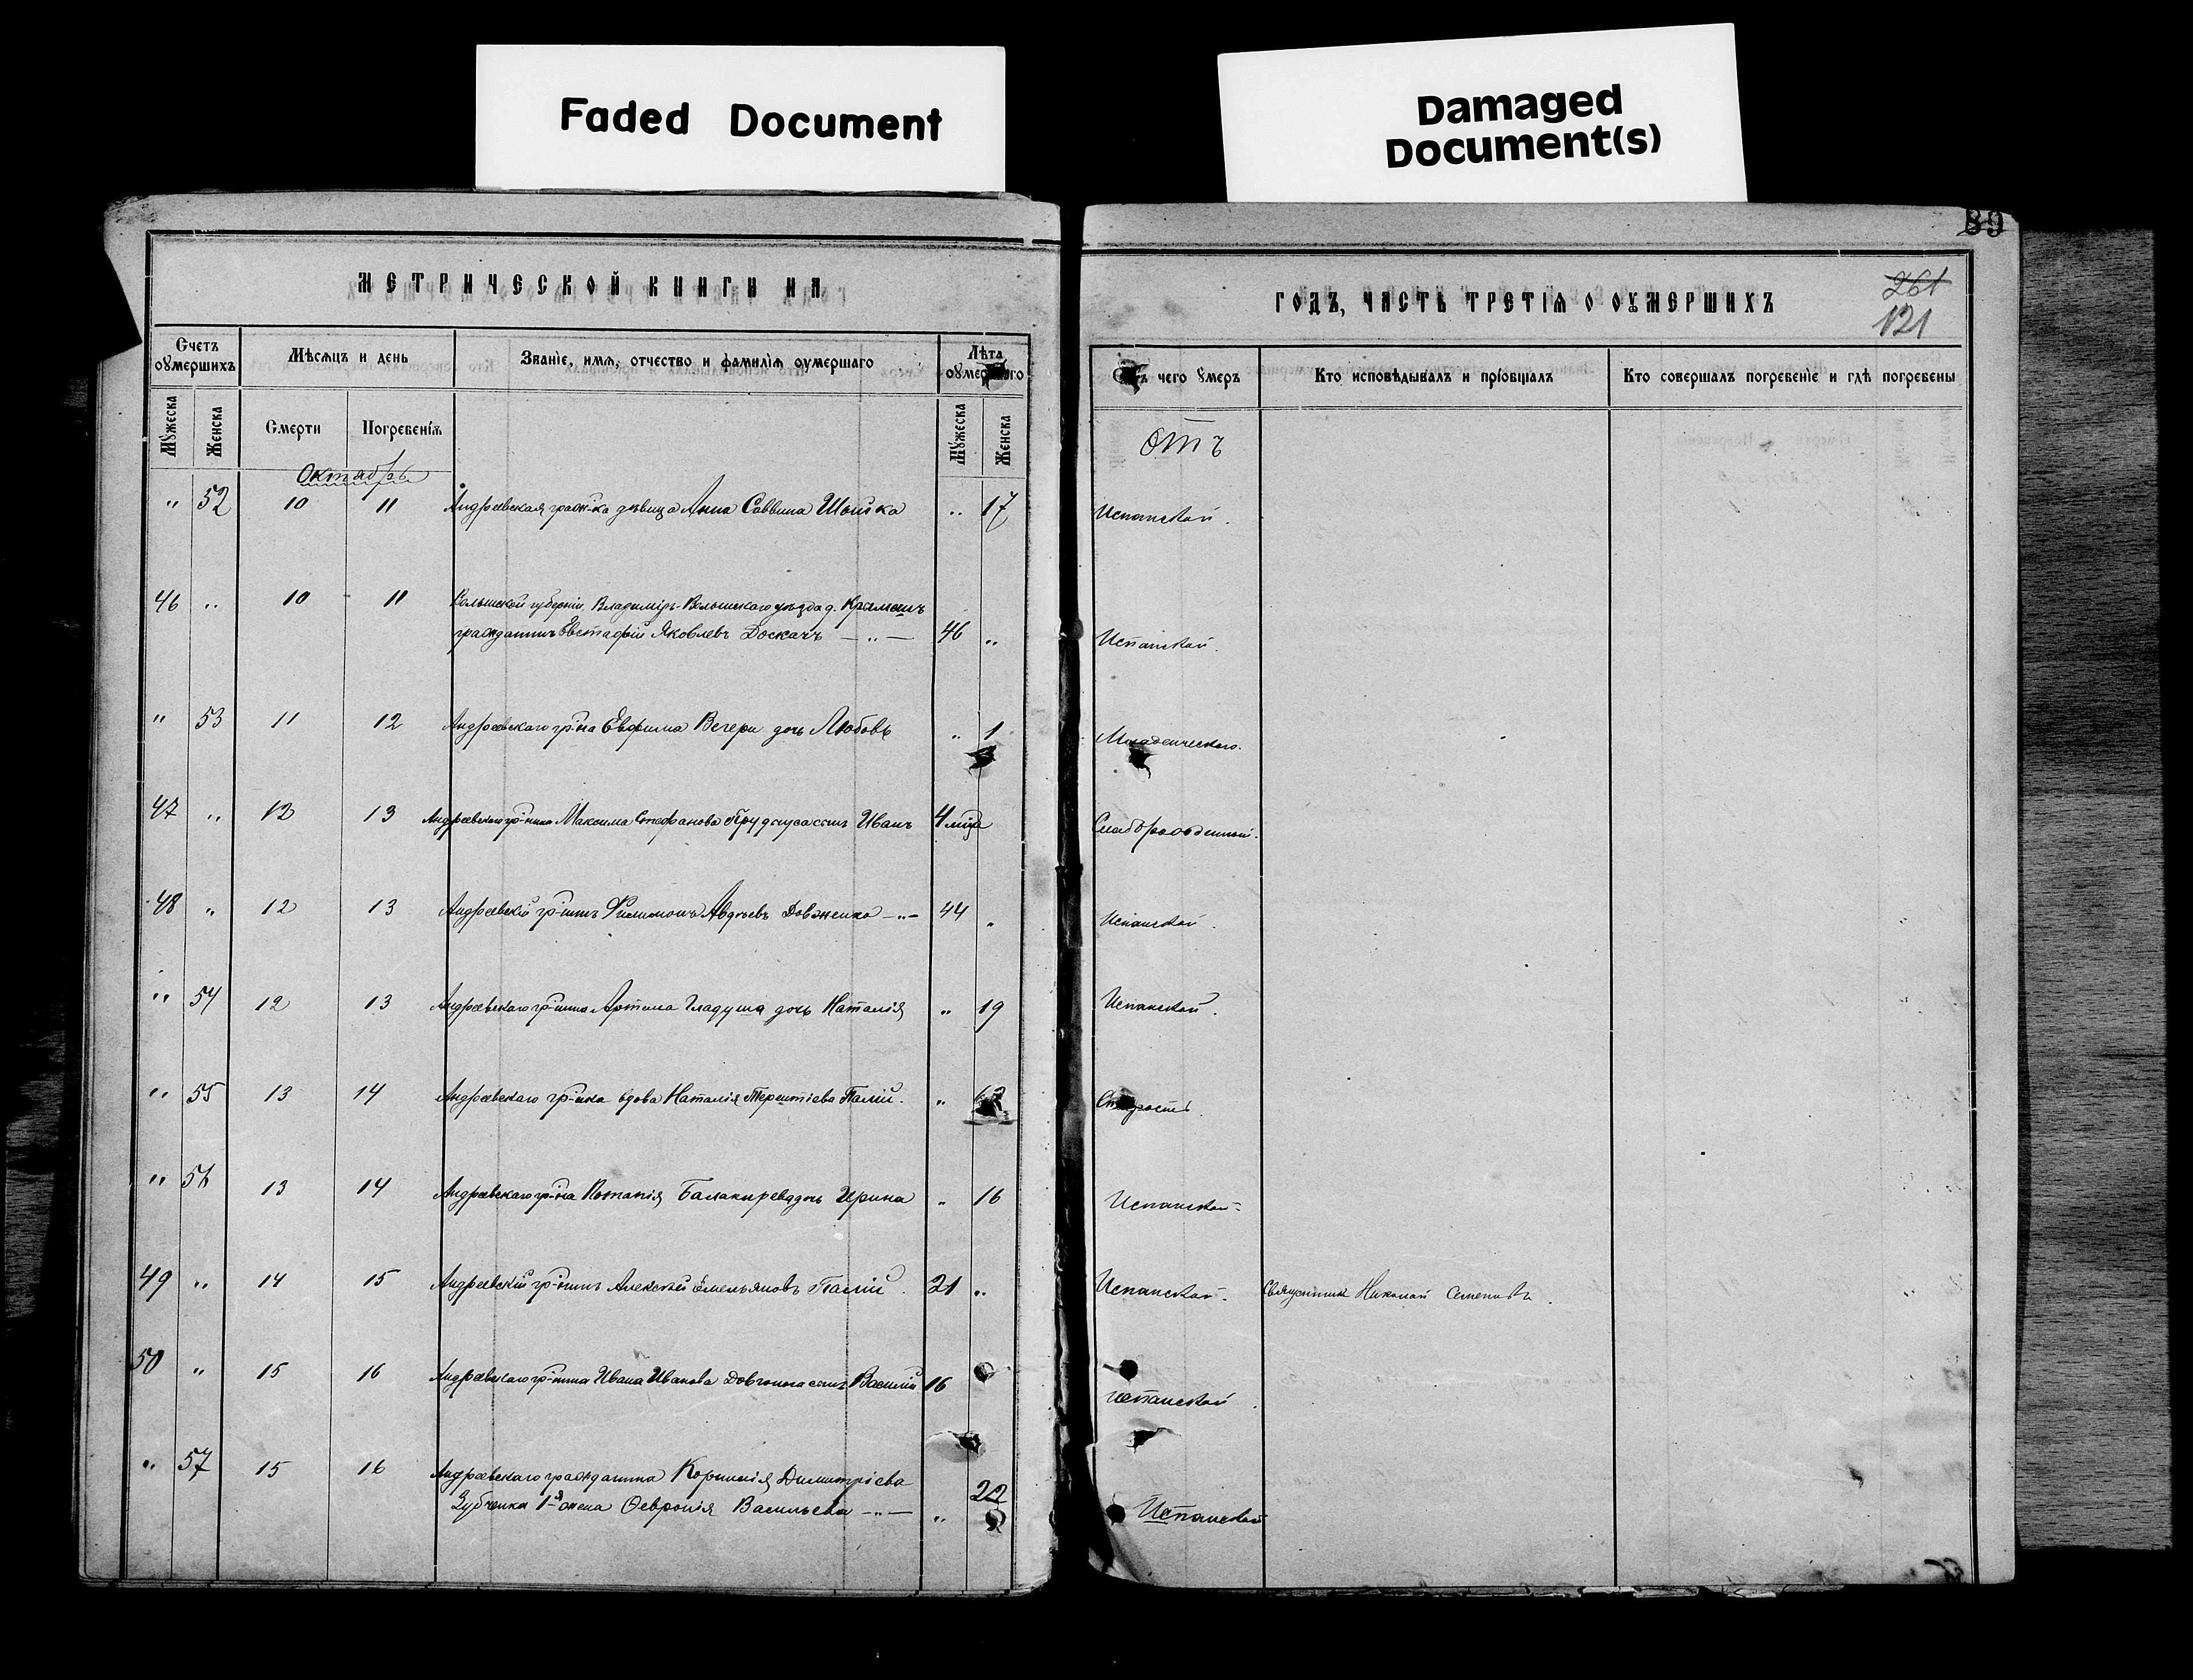 Faded Document
Damaged
Document(s)
89
МЕТРИЧЕСКОЙ КНИГИ НА
ГОДЪ, ЧАСТЬ ТРЕТІЯ О ОУМЕРШИХЪ
261
121
Счетъ оумершихъ
Мѣсяцъ и день
Званіе, имя, отчество и фамилія оумершаго
Лѣта
чего оумеръ
Кто исповѣдывалъ и пріобщалъ
Кто совершалъ погребеніе и гдѣ погребены
Мужеска Женска Смерти Погребенія Мужеска Женска
Октябрь
отъ
" 52 10 11 Андреевская граж-ка дѣвица Анна Саввина " 17 Испанской.
46 " 10 11 Волынской губерніи, Владиміръ-Волынскаго уѣзда д.
гражданинъ Евстафій Яковлевъ Доскачъ — " — 46 " Испанской.
" 53 11 12 Андреевскаго гр-на Евфима Вечери дочь Любовь " 1 Младенческаго.
47 " 12 13 Андреевскаго гр-нина Максима Стефанова сынъ Иванъ 4 мца
48 " 12 13 Андреевскій гр-нинъ Филимонъ Авдѣевъ Довженко — " — 44 " Испанской.
" 54 12 13 Андреевскаго гр-нина Артема Гладуша дочь Наталія " 19 Испанской.
" 55 13 14 Андреевскаго гр-нка вдова Наталія Терентіева Палій. " Старости.
" 56 13 14 Андреевскаго гр-на Потапія Балакирева дочь Ирина " 16 Испанской.
49 " 14 15 Андреевскій гр-нинъ Алексѣй Емельяновъ Палій. 21 " Испанской. Священникъ Николай
50 " 15 16 Андреевскаго гр-нина Ивана Иванова сынъ Василій 16 Испанской.
" 57 15 16 Андреевскаго гражданина Корнилія Димитріева
Зубченка 1-я жена Февронія Васильева — " — " 22 Испанской